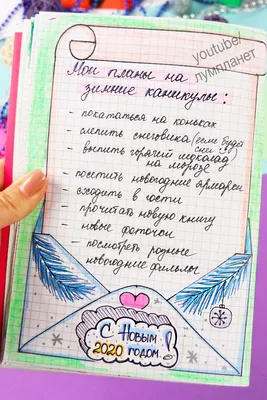 youtube/
лумпланет
Мои планы на
зимние каникулы:
- покататься на коньках
- слепить снеговика (если будет
снег)
- выпить горячий шоколад
на морозе
- посетить новогодние ярмарки
- сходить в гости
- прочитать новую книгу
- новые фоточки
- посмотреть родные
новогодние фильмы
С Новым
2020 годом!